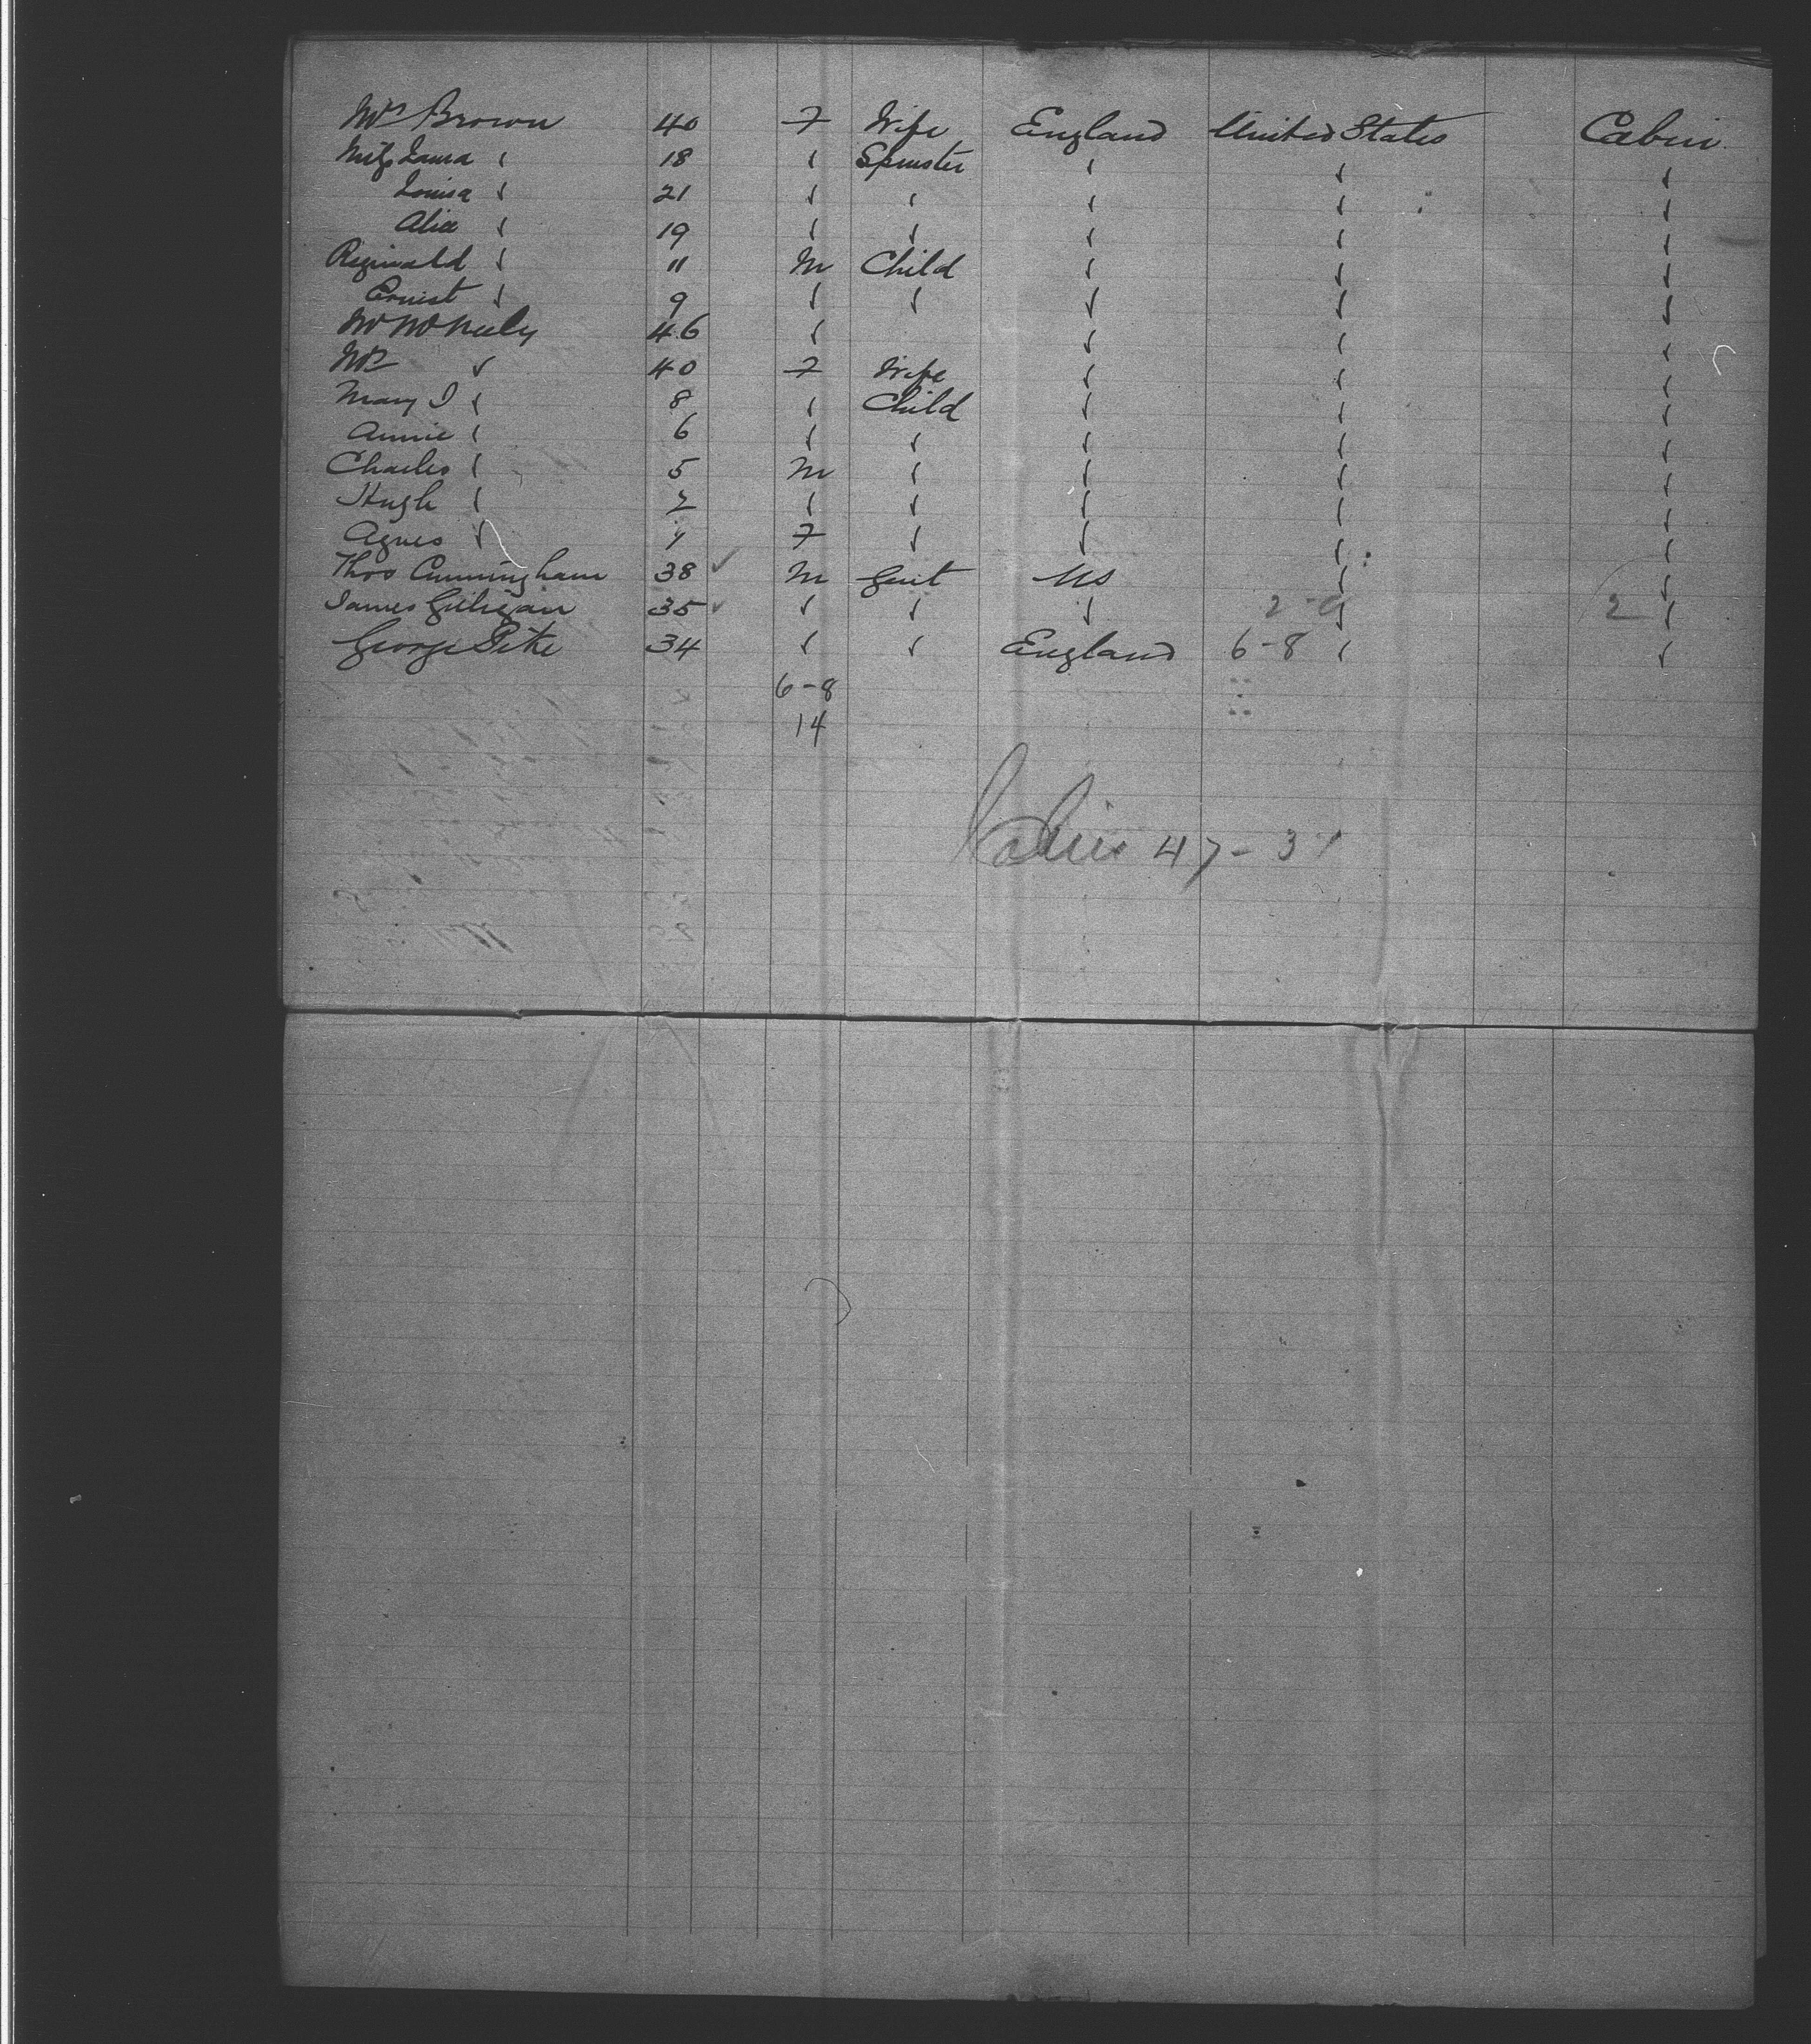 Mrs Brown 40 F Wife England United States Cabin
Miss Laura " 18 " Spinster " " "
Louisa " 21 " " " " "
Alice " 19 " " " " "
Reginald " 11 M Child " " "
Ernest " 9 " " " " "
Mr 46 " " " "
Mrs " 40 F Wife " " "
Mary J " 8 " Child " " "
Annie " 6 " " " " "
Charles " 5 M " " " "
Hugh " 2 " " " " "
Agnes " 1 F " " " "
Thos Cunningham 38 ✓ M Gent US " "
James Gilligan 35 ✓ " " " 2-0 " 2 "
George Pike 34 " " England 6-8 " "
6-8
14
Cabin 47-